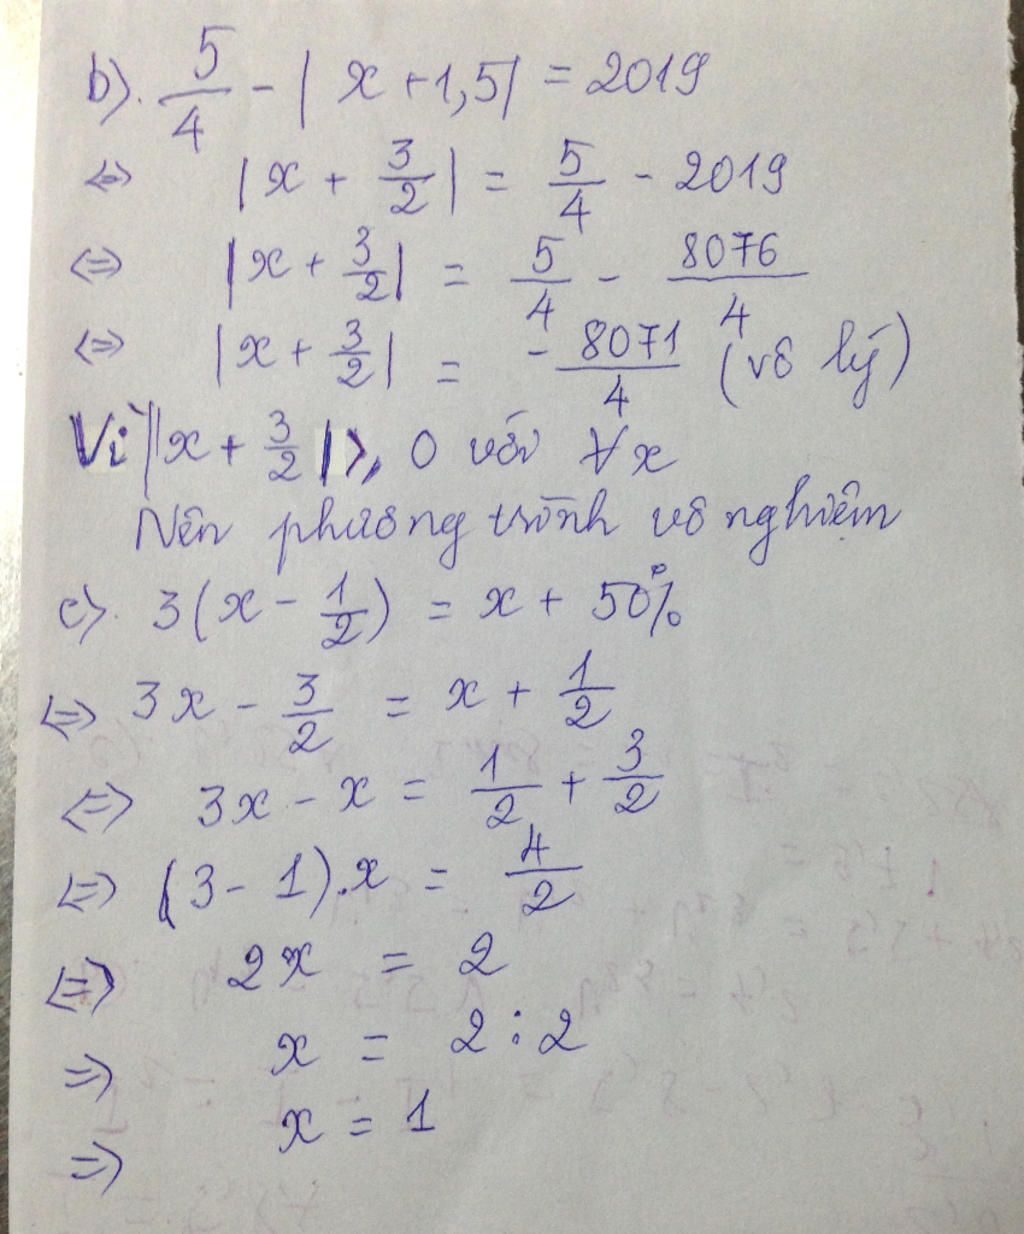 b). 5/4 - | x + 1,5| = 2019
⇔ |x + 3/2| = 5/4 - 2019
⇔ |x + 3/2| = 5/4 - 8076/4
⇔ |x + 3/2| = - 8071/4 (vô lý)
Vì |x + 3/2| ≥ 0 với ∀x
Nên phương trình vô nghiệm
c). 3(x - 1/2) = x + 50%
⇔ 3x - 3/2 = x + 1/2
⇔ 3x - x = 1/2 + 3/2
⇔ (3 - 1).x = 4/2
⇔ 2x = 2
⇒ x = 2 : 2
⇒ x = 1